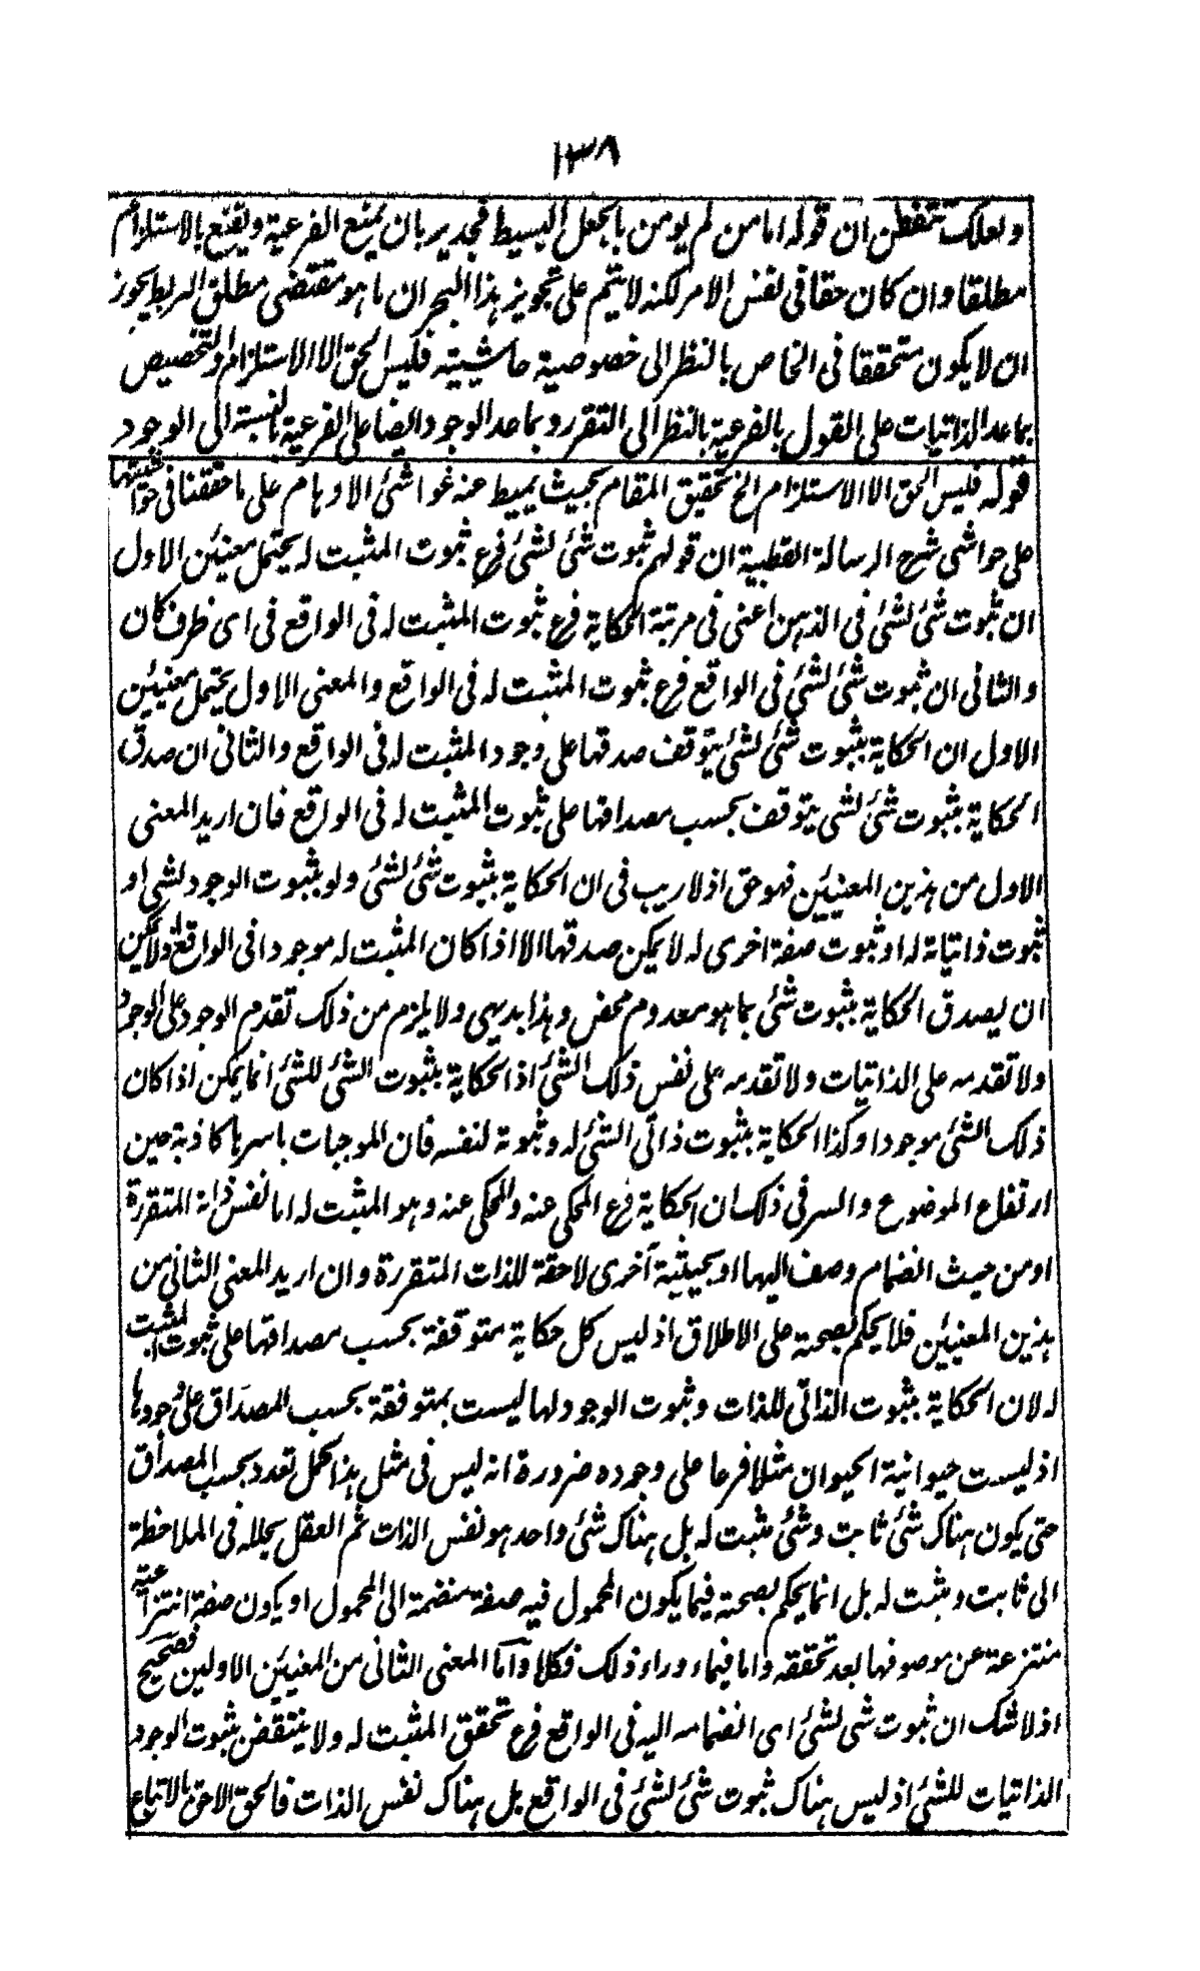 ١٣٨
ولعلک تتفطن ان قوله اما من لم یومن بالجعل البسیط فجدیر بان یمنع الفرعیة ویقنع بالاستلزام
مطلقا وان کان حقا فی نفس الامر لکنه لا یتم علی تجویز هذا البحر ان ما هو مقتضی مطلق الربط یجوز
ان لا یکون متحققا فی الخاص بالنظر الی خصوصیة حاشیتیه فلیس الحق الا الاستلزام والتخصیص
بما عدا الذاتیات علی القول بالفرعیة بالنظر الی التقرر وبما عدا الوجود ایضا علی الفرعیة بالنسبة الی الوجود
قوله فلیس الحق الا الاستلزام الخ تحقیق المقام بحیث یمیط عنه غواشی الاوهام علی ما حققنا فی حواشیتها
علی حواشی شرح الرسالة القطبیة ان قولهم ثبوت شئ لشئ فرع ثبوت المثبت له یحتمل معنیین الاول
ان ثبوت شئ لشئ فی الذهن اعنی فی مرتبة الحکایة فرع ثبوت المثبت له فی الواقع فی ای ظرف کان
والثانی ان ثبوت شئ لشئ فی الواقع فرع ثبوت المثبت له فی الواقع والمعنی الاول یحتمل معنیین
الاول ان الحکایة بثبوت شئ لشئ یتوقف صدقها علی وجود المثبت له فی الواقع والثانی ان صدق
الحکایة بثبوت شئ لشی یتوقف بحسب مصداقها علی ثبوت المثبت له فی الواقع فان ارید المعنی
الاول من هذین المعنیین فهو حق اذ لا ریب فی ان الحکایة بثبوت شئ لشئ ولو بثبوت الوجود لشی او
ثبوت ذاتیاته له او ثبوت صفة اخری له لا یمکن صدقها الا اذا کان المثبت له موجودا فی الواقع ولا یمکن
ان یصدق الحکایة بثبوت شئ بما هو معدوم محض وهذا بدیهی ولا یلزم من ذلک تقدم الوجود علی الوجود
ولا تقدمه علی الذاتیات ولا تقدمه علی نفس ذلک الشئ اذ الحکایة بثبوت الشئ للشئ انما یمکن اذا کان
ذلک الشئ موجودا وکذا الحکایة بثبوت ذاتی الشئ له وثبوته لنفسه فان الموجبات باسرها کاذبة حین
ارتفاع الموضوع والسر فی ذلک ان الحکایة فرع المحکی عنه والمحکی عنه وهو المثبت له اما نفس ذاته المتقررة
او من حیث انضمام وصف الیها او بحیثیة آخری لاحقة للذات المتقررة وان ارید المعنی الثانی من
هذین المعنیین فلا یحکم بصحته علی الاطلاق اذ لیس کل حکایة متوقفة بحسب مصداقها علی ثبوت المثبت
له لان الحکایة بثبوت الذاتی للذات وثبوت الوجود لها لیست بمتوقفة بحسب المصداق علی وجودها
اذ لیست حیوانیة الحیوان مثلا فرعا علی وجوده ضرورة انه لیس فی مثل هذا الحمل تعدد بحسب المصداق
حتی یکون هناک شئ ثابت وشئ مثبت له بل هناک شئ واحد هو نفس الذات ثم العقل یحلله فی الملاحظة
الی ثابت ومثبت له بل انما یحکم بصحته فیما یکون المحمول فیه صفة منضمة الی المحمول او یکون صفة انتزاعیة
منتزعة عن موصوفها بعد تحققه واما فیماء وراء ذلک فکلا وآما المعنی الثانی من المعنیین الاولین فصحیح
اذ لا شک ان ثبوت شی لشئ ای انضمامه الیه فی الواقع فرع تحقق المثبت له ولا ینتقض بثبوت الوجود
الذاتیات للشئ اذ لیس هناک ثبوت شئ لشئ فی الواقع بل هناک نفس الذات فالحق الاحق بالاتباع